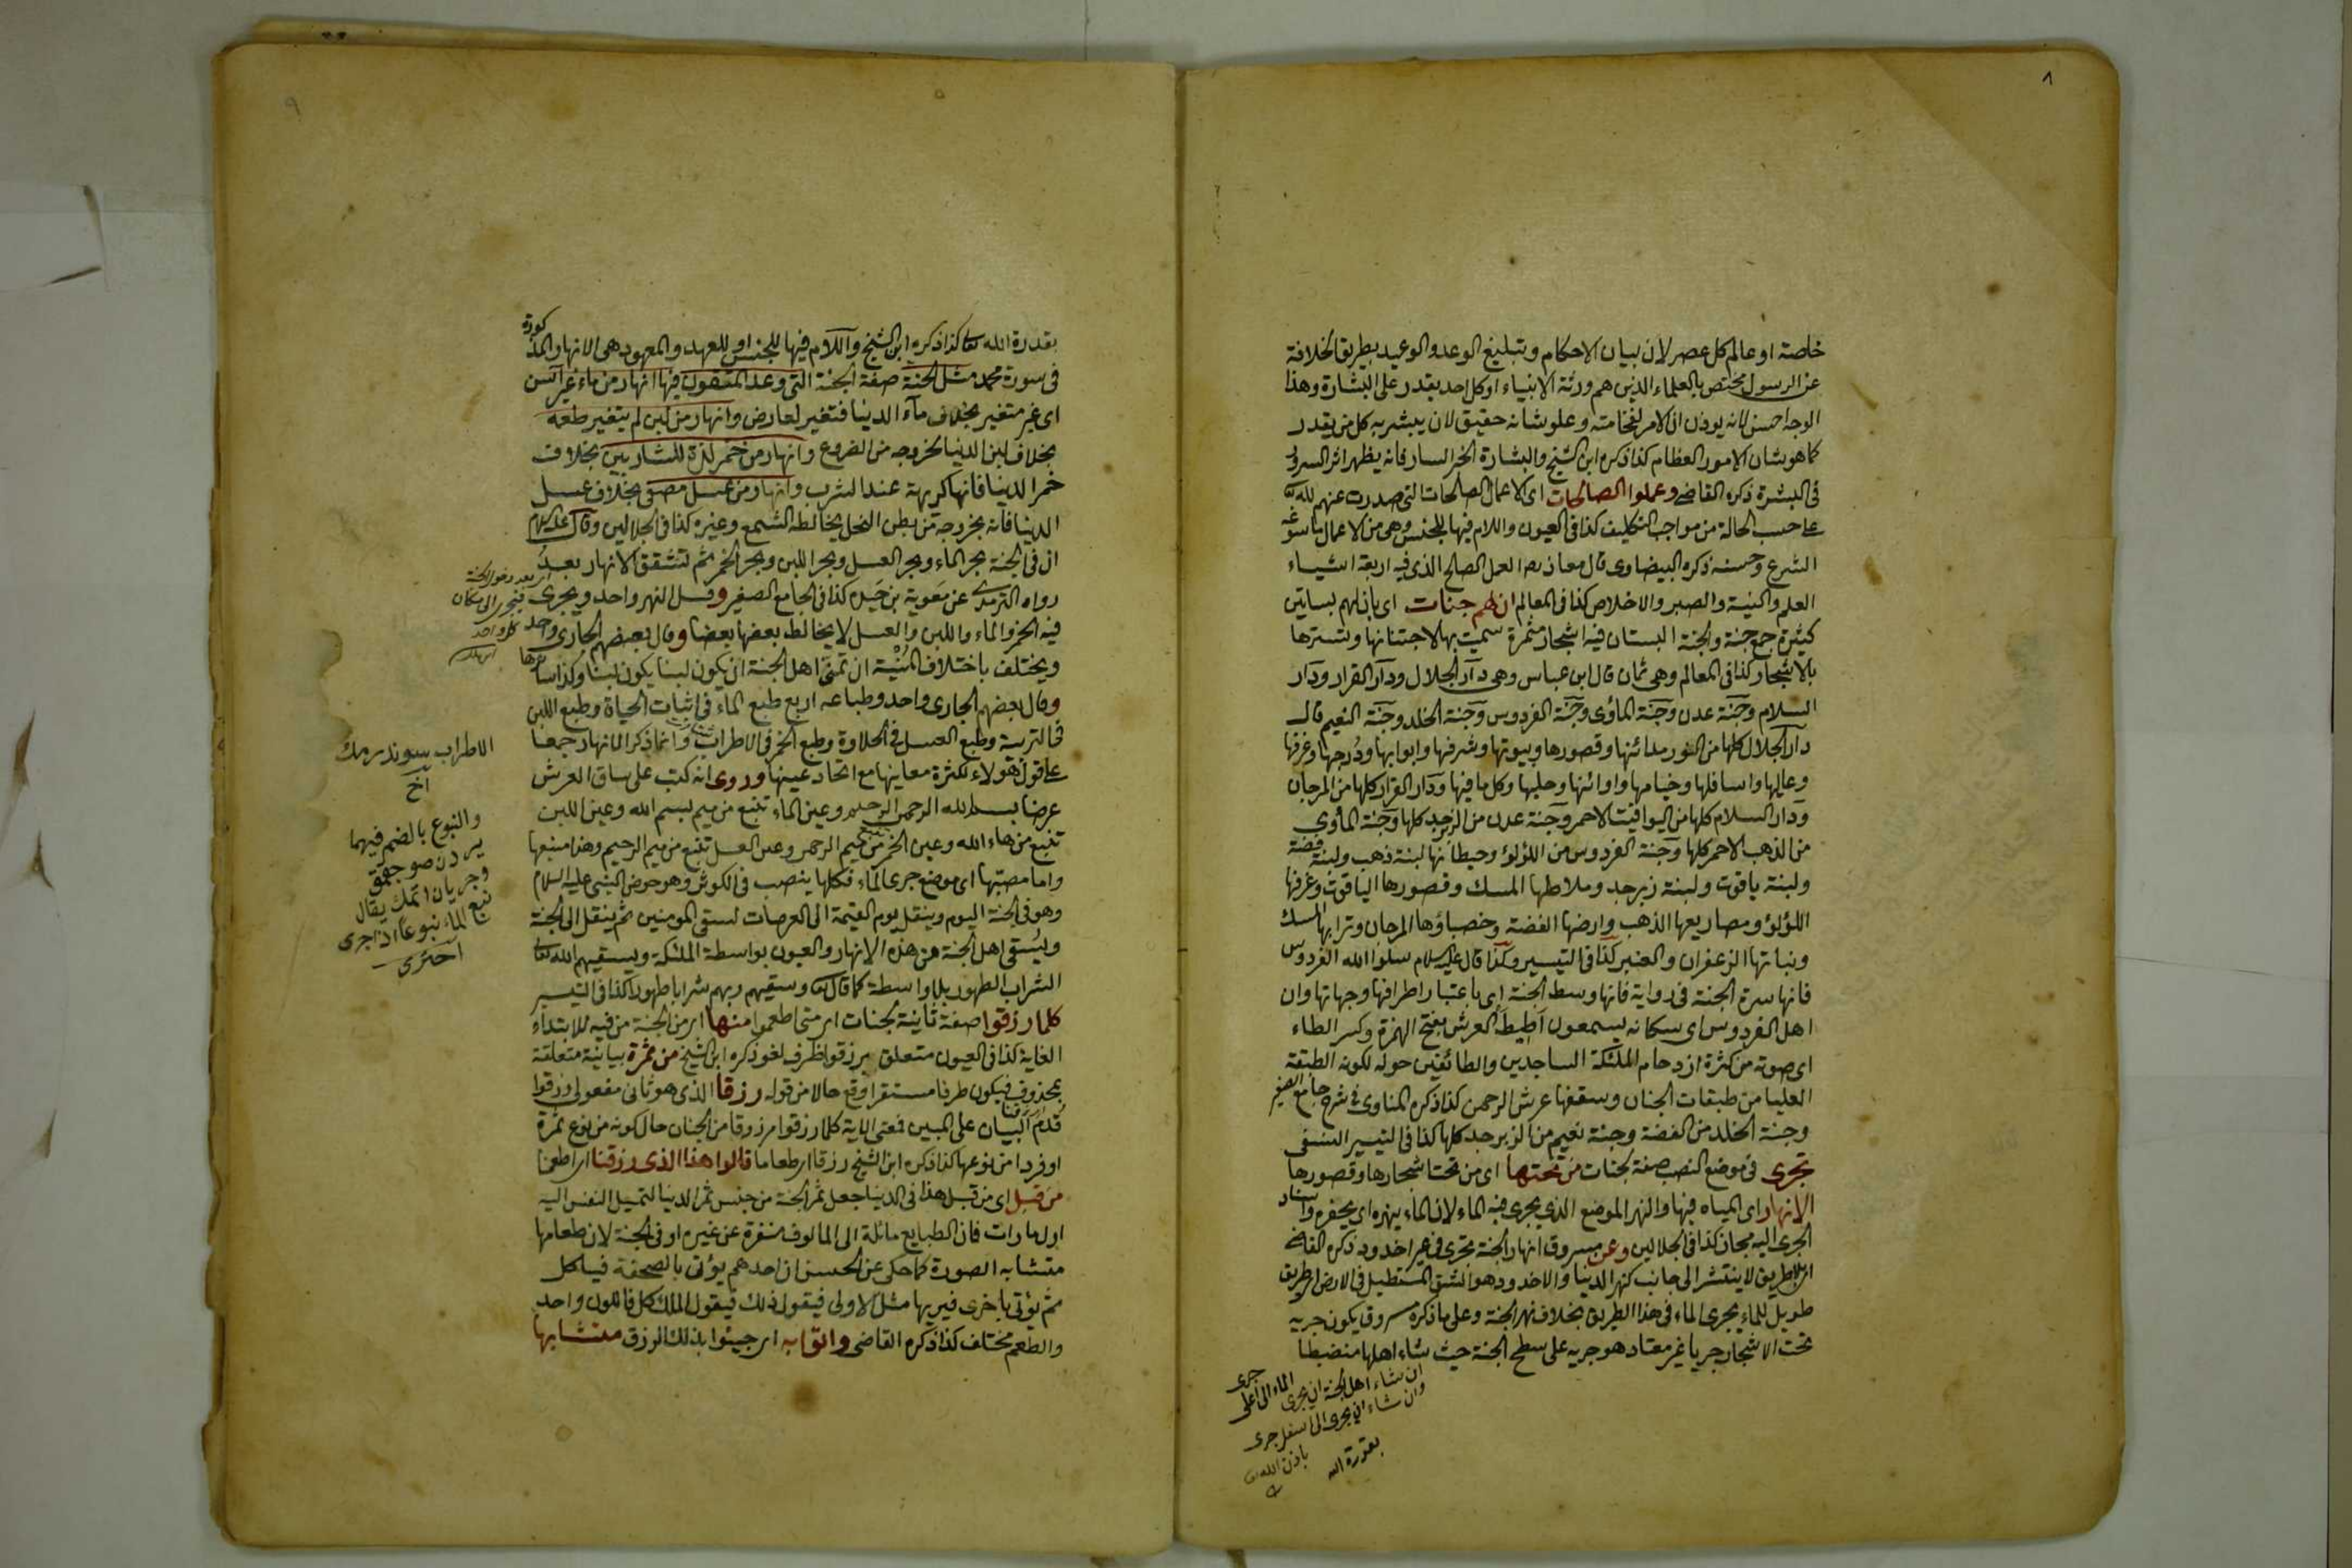 ٨
خاصة او عالم كل عصر لان بيان الاحكام وتبليغ الوعد والوعيد بطريق الخلافة
عن الرسول مختص بالعلماء الذين هم ورثة الانبياء او كل احد يقدر على البشارة وهذا
الوجه احسن لانه يوذن ان الامر لفخامته وعلو شانه حقيق لان يبشر به كل من يقدر
كما هو شان الامور العظام كذا ذكره ابن الشيخ والبشارة الخبر السار فانه يظهر اثر السرور
فى البشرة ذكره القاضى وعملوا الصالحات اى الاعمال الصالحات التى صدرت عنهم لله تعا
على حسب الحالة من مواجب التكليف كذا فى العيون واللام فيها للجنس وهى من الاعمال ما سوغه
الشرع وحسنه ذكره البيضاوى قال معاذ رض العمل الصالح الذى فيه اربعة اشياء
العلم والنية والصبر والاخلاص كذا فى المعالم ان لهم جنات اى بان لهم بساتين
كثيرة جمع جنة والجنة البستان فيه اشجار مثمرة سميت بها لاجتنانها وتسترها
بالاشجار كذا فى المعالم وهى ثمان قال ابن عباس وهى دار الجلال ودار القرار ودار
السلام وجنة عدن وجنة المأوى وجنة الفردوس وجنة الخلد وجنة النعيم قال
دار الجلال كلها من النور مدائنها وقصورها وبيوتها وشرفها وابوابها ودرجها وغرفها
وعاليها واسافلها وخيامها واوانئها وحليها وكل ما فيها ودار القرار كلها من المرجان
ودار السلام كلها من اليواقيت الاحمر وجنة عدن من الزبرجد كلها وجنة المأوى
من الذهب الاحمر كلها وجنة الفردوس من اللؤلؤ وحيطانها لبنة ذهب ولبنة فضة
ولبنة ياقوت ولبنة زبرجد وملاطها المسك وقصورها الياقوت وغرفها
اللؤلؤ ومصاريعها الذهب وارضها الفضة وحصباؤها المرجان وترابها المسك
ونباتها الزعفران والعنبر كذا فى التيسير وكذا قال عليه السلام سلوا الله الفردوس
فانها سرة الجنة فى رواية فانها وسط الجنة اى باعتبار اطرافها وجهاتها وان
اهل الفردوس اى سكانه يسمعون اطيط العرش بفتح الهمزة وكسر الطاء
اى صوته من كثرة ازدحام الملئكة الساجدين والطائفين حوله لكونه الطبقة
العليا من طبقات الجنان وسقفها عرش الرحمن كذا ذكره المناوى فى شرح جامع الصغير
وجنة الخلد من الفضة وجنة نعيم من الزبرجد كلها كذا فى التيسير النسفى
تجرى فى موضع النصب صفة لجنات من تحتها اى من تحت اشجارها وقصورها
الانهار اى المياه فيها والنهر الموضع الذى يجرى فيه الماء لان الماء ينهره اى يحفره واسناد
الجرى اليه مجاز كذا فى الجلالين وعن مسروق انهار الجنة تجرى فى غير اخدود ذكره القاضى
اى بلا طريق لا ينتشر الى جانب كنهر الدنيا والاخدود هو الشق المستطيل فى الارض اى طريق
طويل للماء يجرى الماء فى هذا الطريق بخلاف نهر الجنة وعلى ما ذكره مسروق يكون جريه
تحت الاشجار جريا غير معتاد هو جريه على سطح الجنة حيث شاء اهلها منضبطا
ان شاء اهل الجنة ان يجرى الماء الى اعلى جرى
وان شاء ان يجرى الى اسفل جرى
باذن الله تعا
بقدرة الله
٩
بقدرة الله تعا كذا ذكره ابن الشيخ واللام فيها للجنس او للعهد والمعهود هى الانهار المذكورة
فى سورة محمد مثل الجنة صفة الجنة التى وعد المتقون فيها انهار من ماء غير آسن
اى غير متغير بخلاف مآء الدنيا فتغير لعارض وانهار من لبن لم يتغير طعمه
بخلاف لبن الدنيا لخروجه من الضروع وانهار من خمر لذة للشاربين بخلاف
خمر الدنيا فانها كريهة عند الشرب وانهار من عسل مصفى بخلاف عسل
الدنيا فانه بخروجه من بطن النحل يخالطه الشمع وغيره كذا فى الجلالين وقال عليه السلام
ان فى الجنة بحر الماء وبحر العسل وبحر اللبن وبحر الخمر ثم تشقق الانهار بعد
رواه الترمدى عن معوية بن حيده كذا فى الجامع الصغير وقيل النهر واحد ويجرى
فيه الخمر والماء واللبن والعسل لا يخالط بعضها بعضا وقال بعضهم الجارى واحد
ويختلف باختلاف المنية ان تمنى اهل الجنة ان يكون لبنا يكون لبنا وكذا سائرها
وقال بعضهم الجارى واحد وطباعه اربع طبع الماء فى اثبات الحياة وطبع اللبن
فى التربية وطبع العسل فى الحلاوة وطبع الخمر فى الاطراب وانما ذكر الانهار جمعا
على قول هولاء لكثرة معاينها مع اتحاد عينها وروى انه كتب على ساق العرش
عرضا بسم الله الرحمن الرحيم وعين الماء تنبع من ميم بسم الله وعين اللبن
تنبع من هاء الله وعين الخمر من ميم الرحمن وعين العسل تنبع من ميم الرحيم وهذا منبعها
واما مصبّها اى موضع جرى الماء فكلها ينصب فى الكوثر وهو حوض النبى عليه السلام
وهو فى الجنة اليوم وينقل يوم القيمة الى العرصات لسقى المومنين ثم ينقل الى الجنة
ويسقى اهل الجنة من هذه الانهار والعيون بواسطة الملئكة ويسقيهم الله تعا
الشراب الطهور بلا واسطة كما قال تعا وسقيهم ربهم شرابا طهورا كذا فى التيسير
كلما رزقوا صفة ثانية لجنات اى متى اطعموا منها اى من الجنة من فيه للابتداء
الغاية كذا فى العيون متعلق برزقوا ظرف لغو ذكره ابن الشيخ من ثمرة بيانية متعلقة
بمحذوف فيكون ظرفا مستقرا وقع حالا من قوله رزقا الذى هو ثانى مفعولى رزقوا
قُدّم البيان على المبين فمعنى الاية كلما رزقوا مرزوقا من الجنان حال كونه من نوع ثمرة
او فردا من نوعها كذا ذكره ابن الشيخ رزقا اى طعاما قالوا هذا الذى رزقنا اى اطعمنا
من قبل اى من قبل هذا فى الدنيا جعل ثمر الجنة من جنس ثمر الدنيا لتميل النفس اليه
اول ما رات فان الطبايع مائلة الى المالوف متنفرة عن غيره او فى الجنة لان طعامها
متشابه الصورة كما حكى عن الحسن ان احدهم يؤتى بالصحفة فياكل
ثم يؤتى باخرى فيريها مثل الاولى فيقول ذلك فيقول الملك كل فاللون واحد
والطعم مختلف كذا ذكره القاضى واتوا به اى جيئوا بذلك الرزق متشابها
اى بعد دخول الجنة
فيجرى الى مكان
كل واحد
الاطراب سوندرمك
آخ
والنبوع بالضم فيهما
يردن صو چقمق
وجريان اتمك يقال
نبع الماء نبوعا اذا جرى
آخترى